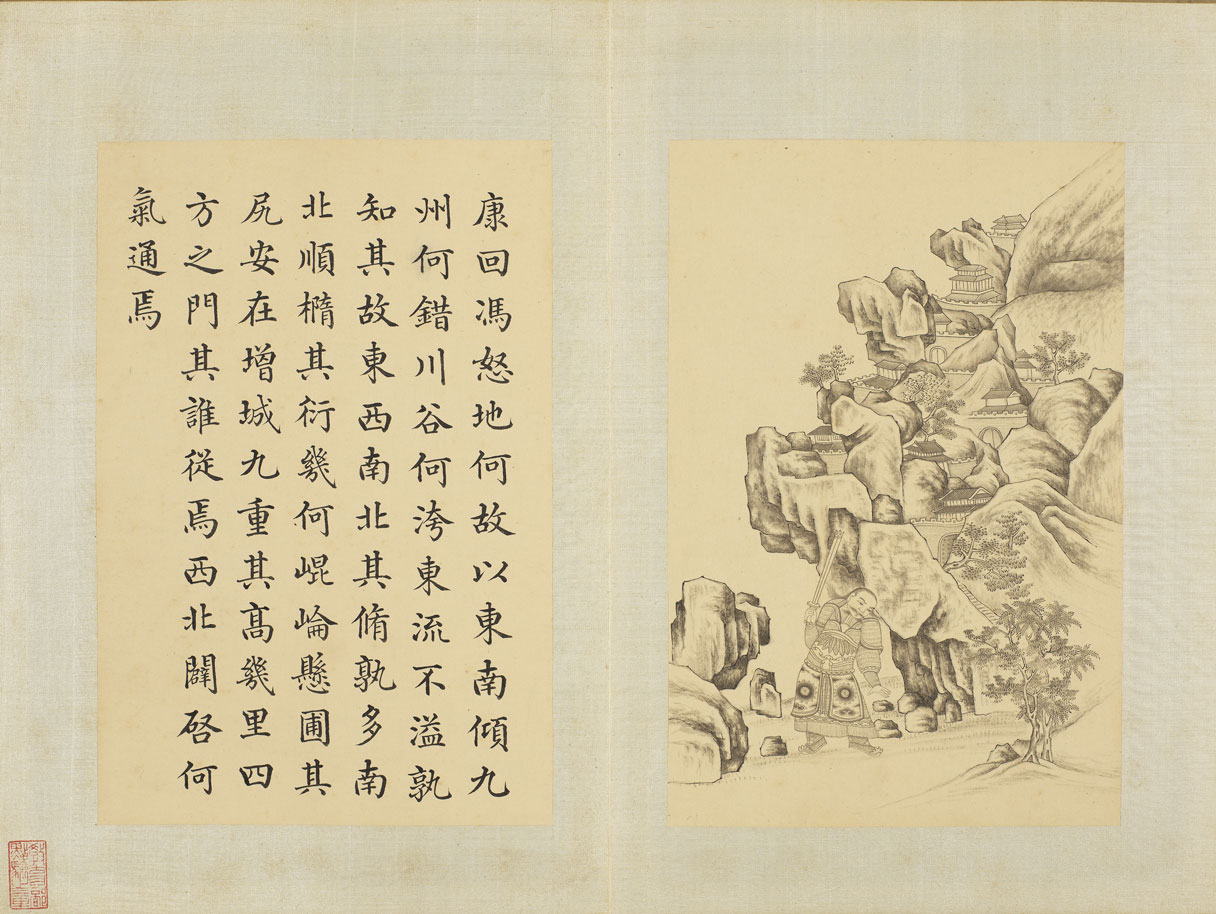 康回馮怒地何故以東南傾九
州何錯川谷何洿東流不溢孰
知其故東西南北其脩孰多南
北順橢其衍幾何崐崘懸圃其
尻安在增城九重其高幾里四
方之門其誰從焉西北闢啓何
氣通焉